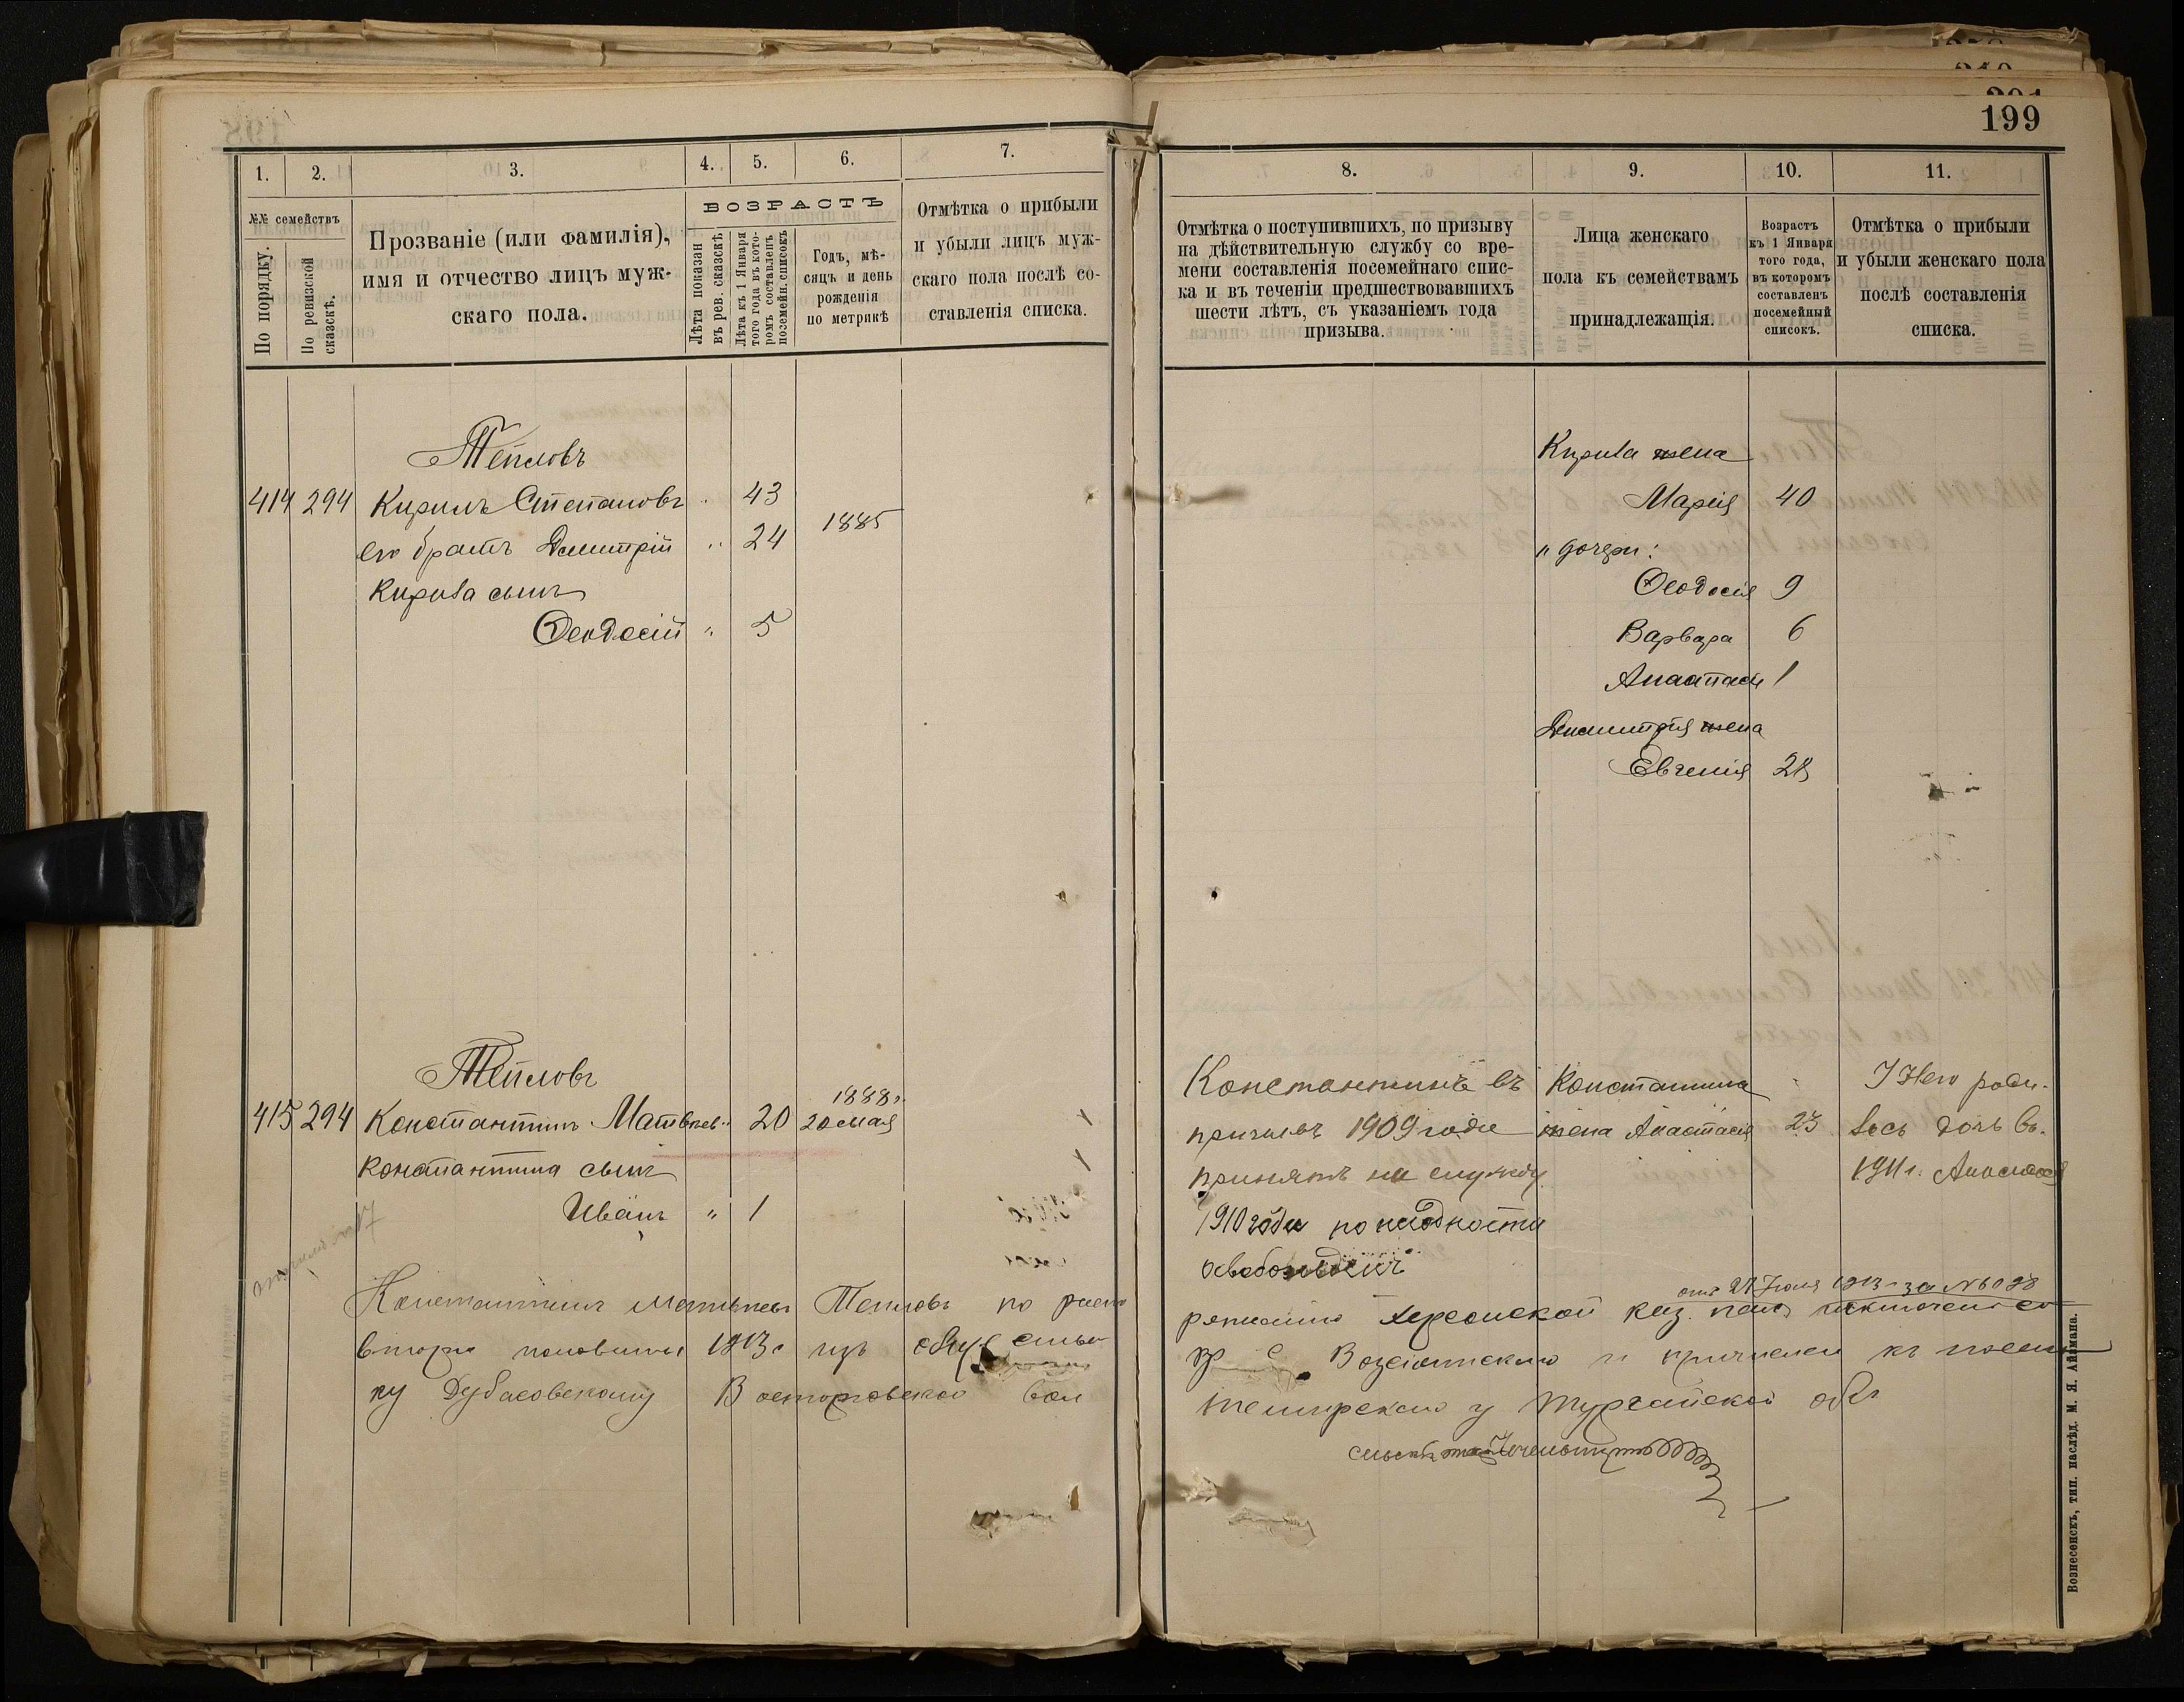 199
1. 2. 3. 4. 5. 6. 7.
№№ семействъ
По порядку.
По ревизской сказскѣ.
Прозваніе (или фамилія),
имя и отчество лицъ муж-
скаго пола.
ВОЗРАСТЪ
Лѣта показан
въ рев. сказскѣ
Лѣта къ 1 Января
того года въ кото-
ромъ составленъ
посемейн. списокъ
Годъ, мѣ-
сяцъ и день
рожденія
по метрикѣ
Отмѣтка о прибыли
и убыли лицъ муж-
скаго пола послѣ со-
ставленія списка.
Тепловъ
414 294 Кирилъ Степановъ 43
его братъ Дмитрій " 24 1885
Кирила сынъ
Феодосій " 5
Тепловъ
415 294 Константинъ Матвѣев " 20 1888г. 20 мая
Константина сынъ
Иванъ " 1
Константинъ Матвѣевъ Тепловъ по распо
второй половины 1913г изъ общ. сель
ку Дубасовскому Вол
8. 9. 10. 11.
Отмѣтка о поступившихъ, по призыву
на дѣйствительную службу со вре-
мени составленія посемейнаго спис-
ка и въ теченіи предшествовавшихъ
шести лѣтъ, съ указаніемъ года
призыва.
Лица женскаго
пола къ семействамъ
принадлежащія.
Возрастъ
къ 1 Января
того года,
въ которомъ
составленъ
посемейный
списокъ.
Отмѣтка о прибыли
и убыли женскаго пола
послѣ составленія
списка.
Кирила жена
Марія 40
" дочери:
Феодосія 9
Варвара 6
Анастасія 1
Дмитрія жена
Евгенія 28
Константинъ въ
призывъ 1909 года
принятъ на службу.
1910 года по негодности
освобожденъ
Константина
жена Анастасія 23
У Него роди-
лась дочь въ
1911г. Анастасія
отъ 27 Іюля 1913г за №
ряженію Херсонской каз. палаты исключенъ со
Вознесенскаго и причисленъ къ посел
Темирскаго у Тургайской обл
Вознесенскъ, тип. наслѣд. М. Я. Аймана.